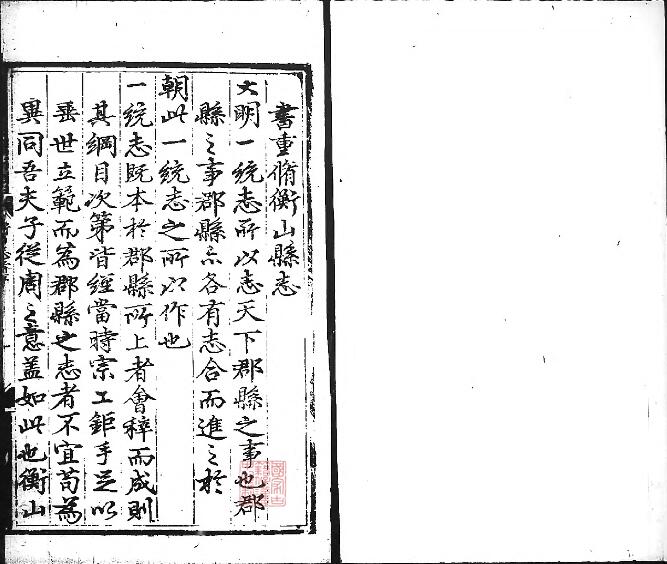 書重脩衡山縣志
大明一統志所以志天下郡縣之事也郡
縣之事郡縣亦各有志合而進之於
朝此一統志之所以作也
一統志既本於郡縣所上者會稡而成則
其綱目次第皆經當時宗工鉅手足以
垂世立範而為郡縣之志者不宜苟為
異同吾夫子從周之意盖如此也衡山